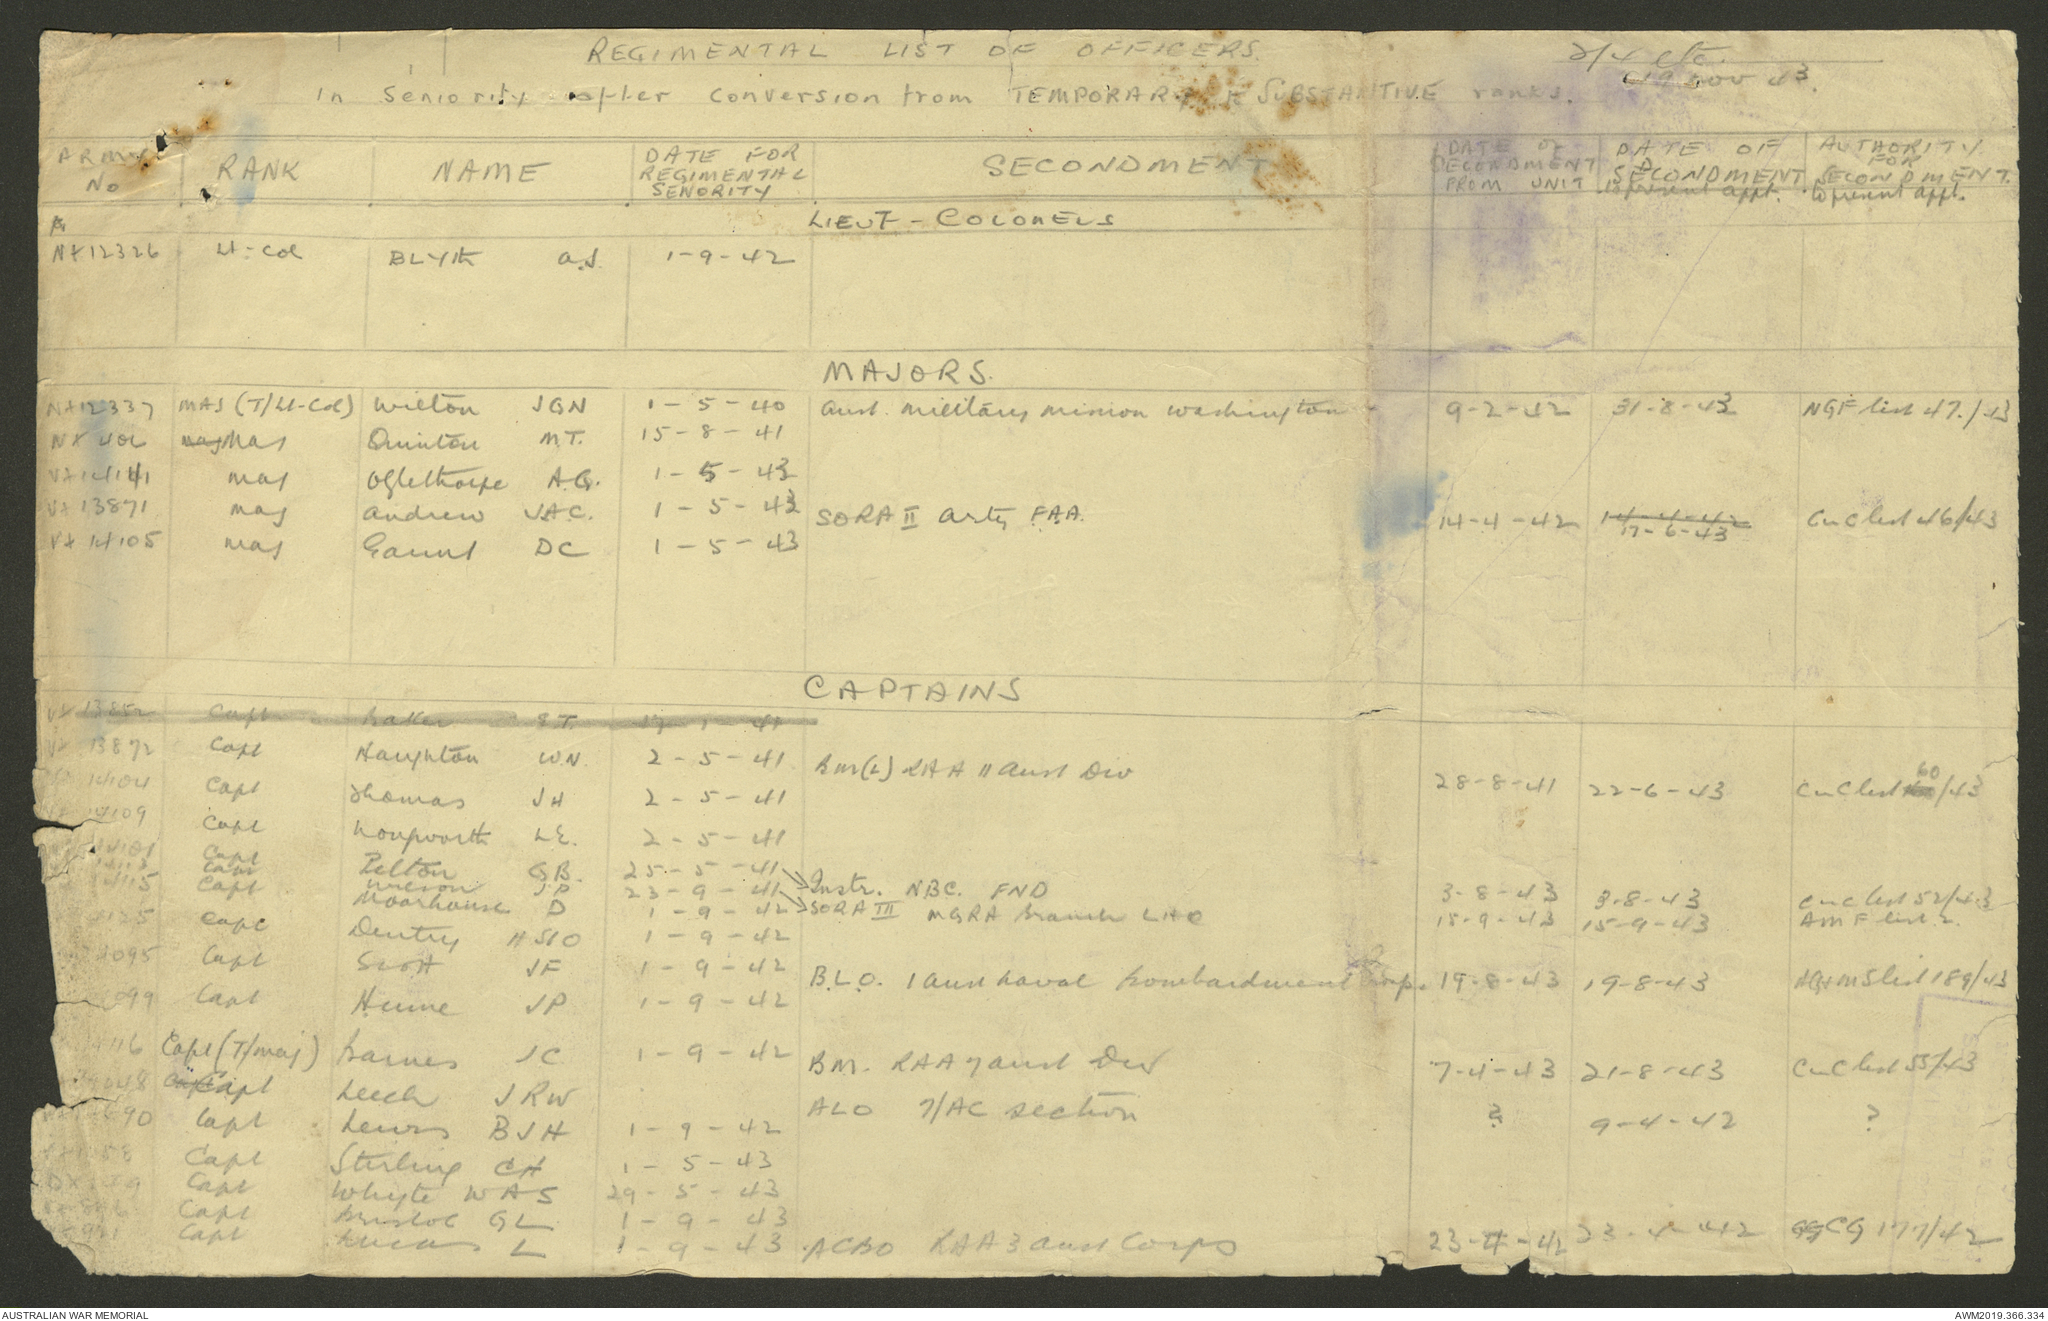 REGIMENTAL LIST OF OFFICERS.
2/4
19 Nov 43.
In Seniority after conversion from TEMPORARY to SUBSTANTIVE ranks.
ARMY No RANK NAME DATE FOR REGIMENTAL SENORITY SECONDMENT DATE OF SECONDMENT FROM UNIT DATE OF SECONDMENT to present appt. AUTHORITY FOR SECONDMENT. to present appt.
LIEUT - COLONELS
NX12326 Lt-Col BLYth A.J. 1-9-42
MAJORS.
NX12337 MAJ (T/Lt-Col) Wilton JGN 1-5-40 Aust. Military Mission Washington 9-2-42 31-8-43 NGF list 47/43
NX 406 Maj Quinton MT. 15-8-41
VX14141 Maj Oglethorpe A.G. 1-5-43
VX13871 Maj Andrew J.A.C. 1-5-43 SORA II Arty F.A.A. 14-4-42 14-4-42 17-6-43 CinC list 46/43
VX14105 Maj Gaunt DC 1-5-43
CAPTAINS
VX13852 Capt Baker 41
VX 13872 Capt Haughton W.N. 2-5-41 BM(L) RAA 11 Aust Div 28-8-41 22-6-43 CinC list 60/43
14104 Capt Thomas JH 2-5-41
14109 Capt L.E. 2-5-41
14101 Capt Pelton G.B. 25-5-41 Instr. NBC. FND 3-8-43 3-8-43 CinC list 52/43
14113 Capt Wilson JP 23-9-41 SORA III MGRA Branch LHQ 15-9-43 15-9-43 AMF list 2.
14115 Capt Moorhouse D 1-9-42
125 Capt Dentry HSJO 1-9-42
4095 Capt Scott JF 1-9-42 B.L.O. 1 Aust Naval Bombardment Group. 19-8-43 19-8-43 list 189/43
4099 Capt Hume JP 1-9-42
116 Capt (T/Maj) Barnes JC 1-9-42 BM. RAA 7 Aust Div 7-4-43 21-8-43 CinC list 55/43
048 Capt Leech JRW ALO 7/AC section ? 9-4-42 ?
690 Capt Lewis BJH 1-9-42
58 Capt Stirling CH 1-5-43
Capt Whyte WAS 29-5-43
Capt Bristol GL 1-9-43
921 Capt Lucas L 1-9-43 ACBO RAA 3 Aust Corps 23-4-42 23-4-42 CG 177/42
AUSTRALIAN WAR MEMORIAL
AWM2019.366.334